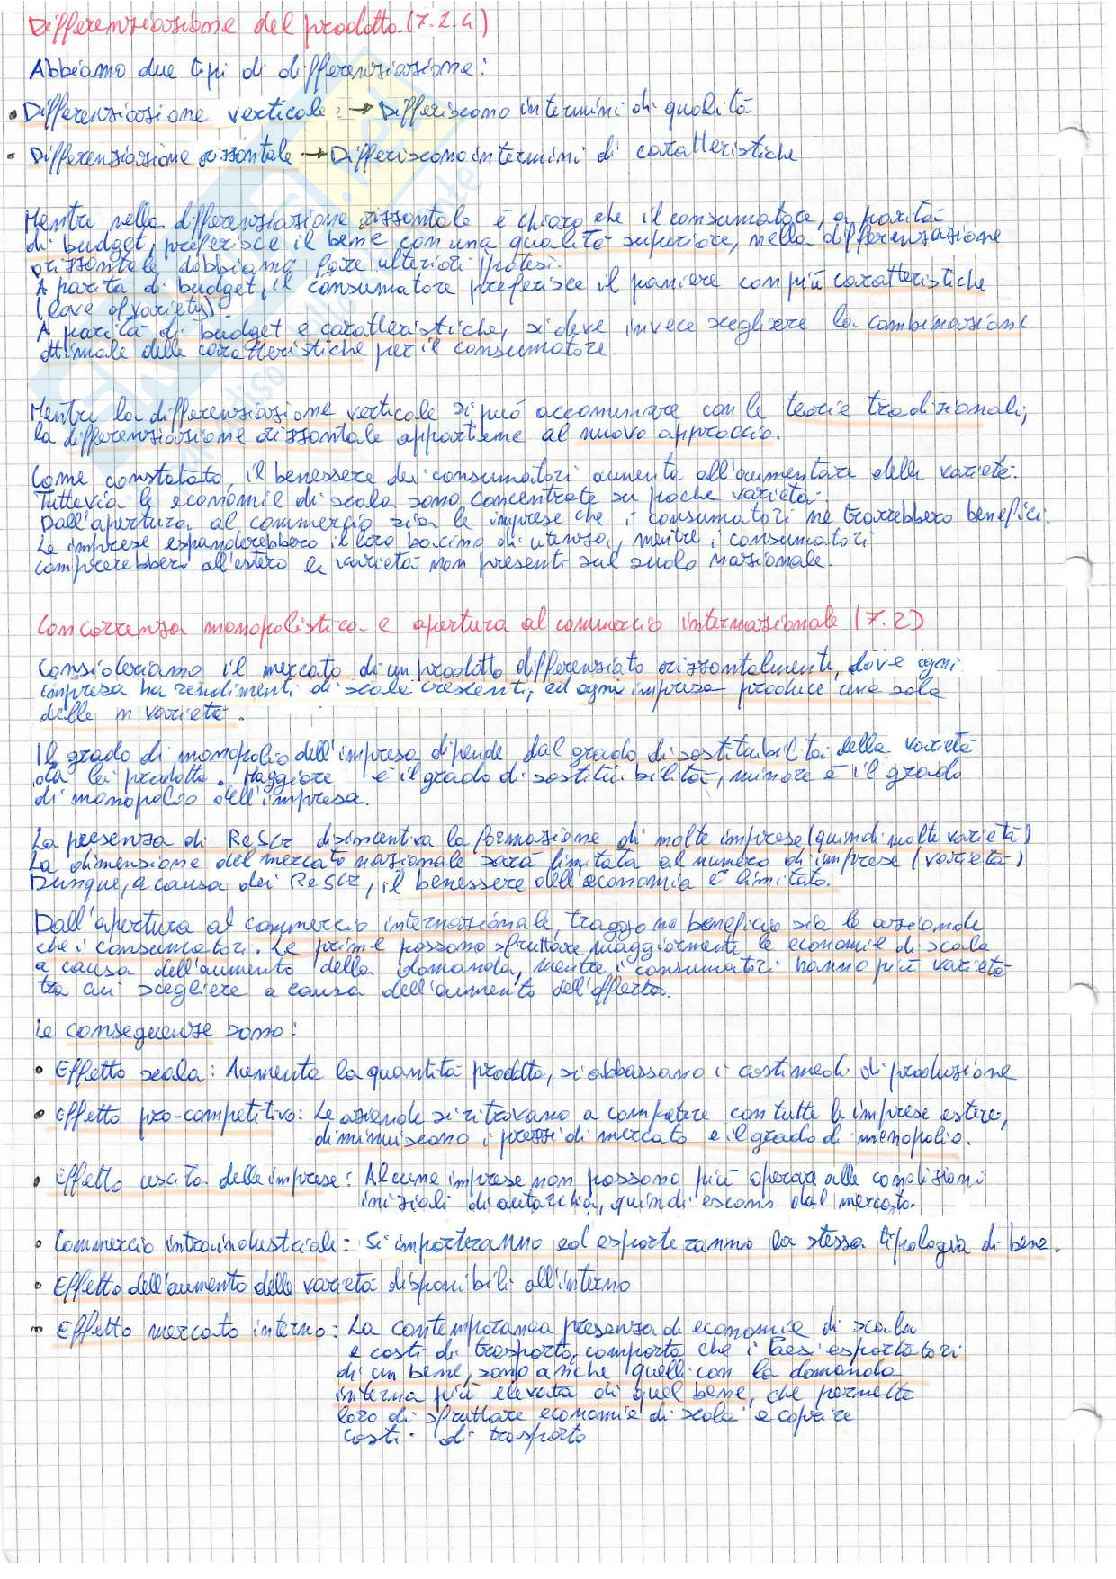 Differenziazione del prodotto (7.1.4)
Abbiamo due tipi di differenziazione:
• Differenziazione verticale: → Differiscono in termini di qualità
• Differenziazione orizzontale → Differiscono in termini di caratteristiche
Mentre nella differenziazione orizzontale è chiaro che il consumatore, a parità
di budget, preferisce il bene con una qualità superiore, nella differenziazione
orizzontale dobbiamo fare ulteriori ipotesi.
A parità di budget, il consumatore preferisce il paniere con più caratteristiche
(love of variety).
A parità di budget e caratteristiche, si deve invece scegliere la combinazione
ottimale delle caratteristiche per il consumatore
Mentre la differenziazione verticale si può accomunare con le teorie tradizionali,
la differenziazione orizzontale appartiene al nuovo approccio.
Come constatato, il benessere dei consumatori aumenta all'aumentare delle varietà.
Tuttavia le economie di scala sono concentrate su poche varietà.
Dall'apertura al commercio sia le imprese che i consumatori ne trarrebbero benefici.
Le imprese espanderebbero il loro bacino di utenza, mentre i consumatori
comprerebbero all'estero le varietà non presenti sul suolo nazionale.
Concorrenza monopolistica e apertura al commercio internazionale (7.2)
Consideriamo il mercato di un prodotto differenziato orizzontalmente, dove ogni
impresa ha rendimenti di scala crescenti, ed ogni impresa produce una sola
delle n varietà.
Il grado di monopolio dell'impresa dipende dal grado di sostituibilità della varietà
da lei prodotta. Maggiore è il grado di sostituibilità, minore è il grado
di monopolio dell'impresa.
La presenza di ReScr disincentiva la formazione di molte imprese (quindi molte varietà)
La dimensione del mercato nazionale sarà limitata al numero di imprese (varietà)
Dunque, a causa dei ReScr, il benessere dell'economia è limitato.
Dall'apertura al commercio internazionale, traggono beneficio sia le aziende
che i consumatori. Le prime possono sfruttare maggiormente le economie di scala
a causa dell'aumento della domanda, mentre i consumatori hanno più varietà
tra cui scegliere a causa dell'aumento dell'offerta.
Le conseguenze sono:
• Effetto scala: Aumenta la quantità prodotta, si abbassano i costi medi di produzione
• Effetto pro-competitivo: Le aziende si ritrovano a competere con tutte le imprese estere,
diminuiscono i prezzi di mercato e il grado di monopolio.
• Effetto uscita delle imprese: Alcune imprese non possono più operare alle condizioni
iniziali di autarchia, quindi escono dal mercato.
• Commercio intraindustriale: Si importeranno ed esporteranno la stessa tipologia di bene.
• Effetto dell'aumento delle varietà disponibili all'interno
• Effetto mercato interno: La contemporanea presenza di economie di scala
e costi di trasporto, comporta che i Paesi esportatori
di un bene, sono anche quelli con la domanda
interna più elevata di quel bene, che permette
loro di sfruttare economie di scala e coprire
costi di trasporto